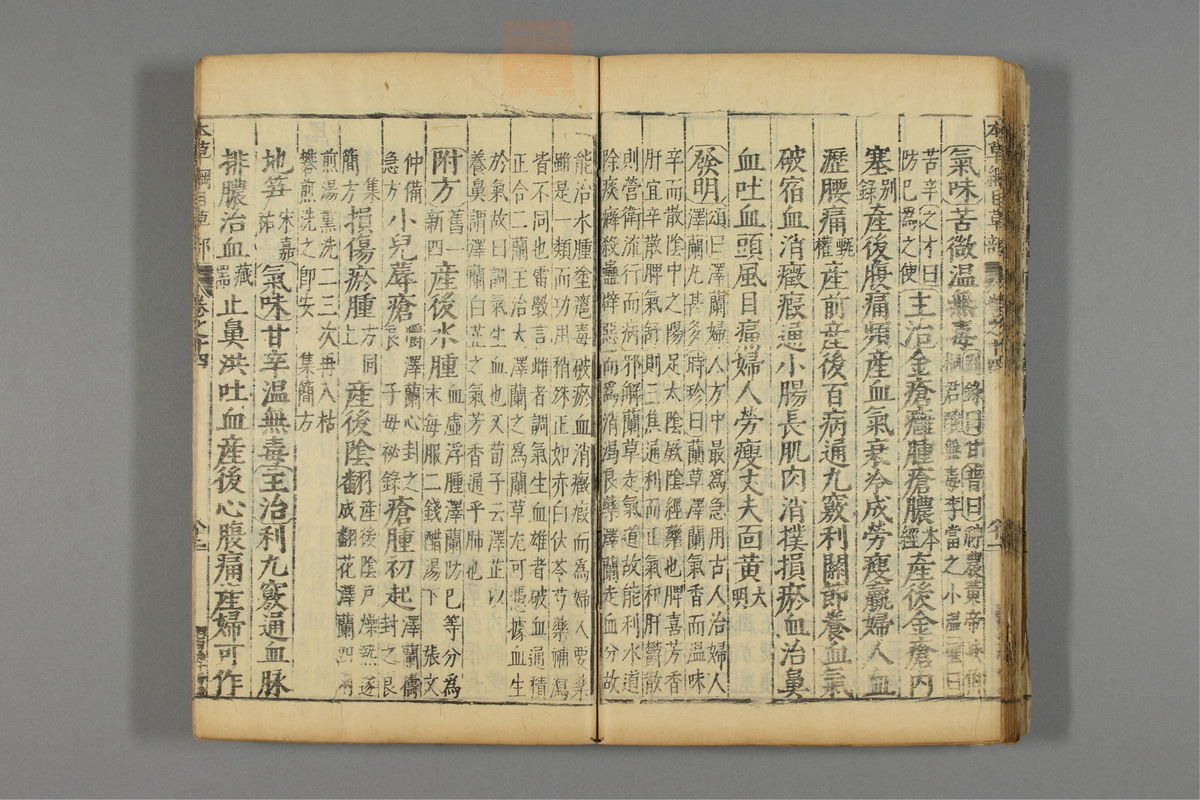 氣味苦微溫無毒別錄曰甘普曰神農黃帝岐伯
桐君酸無毒李當之小溫權曰
苦辛之才曰
防己爲之使主治金瘡癰腫瘡膿本經產後金瘡內
塞別錄產後腹痛頻產血氣衰冷成勞瘦羸婦人血
瀝腰痛甄權產前產後百病通九竅利關節養血氣
破宿血消癥瘕通小腸長肌肉消撲損瘀血治鼻
血吐血頭風目痛婦人勞瘦丈夫面黃大明
發明頌曰澤蘭婦人方中最爲急用古人治婦人
澤蘭丸甚多時珍曰蘭草澤蘭氣香而溫味
辛而散陰中之陽足太陰厥陰經藥也脾喜芳香
肝宜辛散脾氣舒則三焦通利而正氣和肝鬱散
則營衛流行而病邪解蘭草走氣道故能利水道
除痰癖殺蠱辟惡而爲消渴良藥澤蘭走血分故
能治水腫塗癰毒破瘀血消癥瘕而爲婦人要藥
雖是一類而功用稍殊正如赤白伏苓芍藥補瀉
皆不同也雷斅言雌者調氣生血雄者破血通積
正合二蘭主治大澤蘭之爲蘭草尤可憑據血生
於氣故曰調氣生血也又荀子云澤芷以
養鼻謂澤蘭白芷之氣芳香通乎肺也
附方舊一新四產後水腫血虛浮腫澤蘭防己等分爲
末每服二錢醋湯下張文
仲備
急方小兒蓐瘡嚼澤蘭心封之
良子母祕錄瘡腫初起澤蘭擣
封之良
集
簡方損傷瘀腫方同
上產後陰翻產後陰戶燥熱遂
成翻花澤蘭四兩
煎湯熏洗二三次再入枯
礬煎洗之即安集簡方
地笋宋嘉祐氣味甘辛溫無毒主治利九竅通血脉
排膿治血藏器止鼻洪吐血產後心腹痛產婦可作